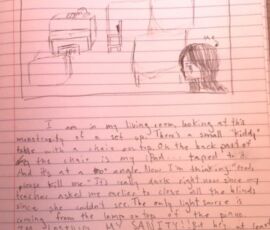 me
I am in my living room, looking at this
monstrosity of a set up. There's a small "kiddy"
table with a chair on top. On the back part of
the chair is my iPad... taped to it.
And it's at a angle. Now I'm thinking "
please kill me." It's really dark right now since my
teacher asked me earlier to close all the blinds
since she couldn't see. The only light source is
coming from the lamp on top of the piano.
MY SANITY!